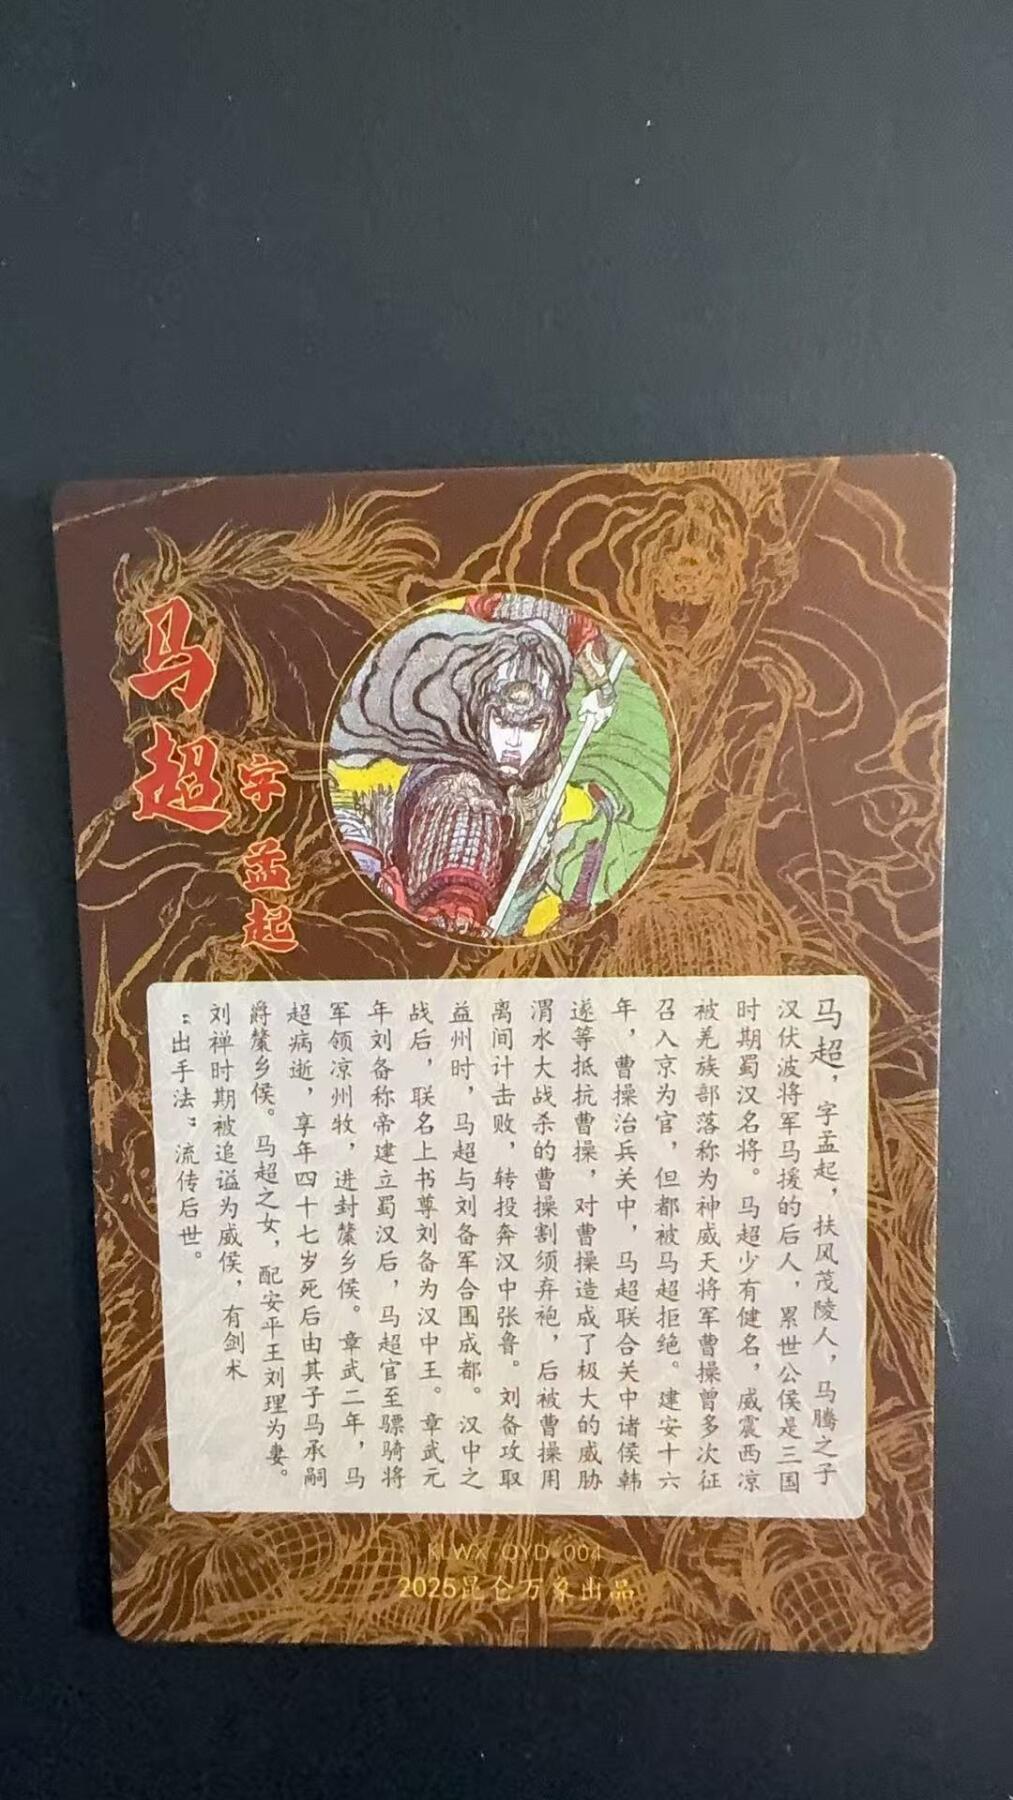 马超
字孟起
马超，字孟起，扶风茂陵人，马腾之子
汉伏波将军马援的后人，累世公侯是三国
时期蜀汉名将。马超少有健名，威震西凉
被羌族部落称为神威天将军曹操曾多次征
召入京为官，但都被马超拒绝。建安十六
年，曹操治兵关中，马超联合关中诸侯韩
遂等抵抗曹操，对曹操造成了极大的威胁
渭水大战杀的曹操割须弃袍，后被曹操用
离间计击败，转投奔汉中张鲁。刘备攻取
益州时，马超与刘备军合围成都。汉中之
战后，联名上书尊刘备为汉中王。章武元
年刘备称帝建立蜀汉后，马超官至骠骑将
军领凉州牧，进封斄乡侯。章武二年，马
超病逝，享年四十七岁死后由其子马承嗣
爵斄乡侯。马超之女，配安平王刘理为妻。
刘禅时期被追谥为威侯，有剑术
：出手法：流传后世。
KLWX-QYD-004
2025昆仑万象出品